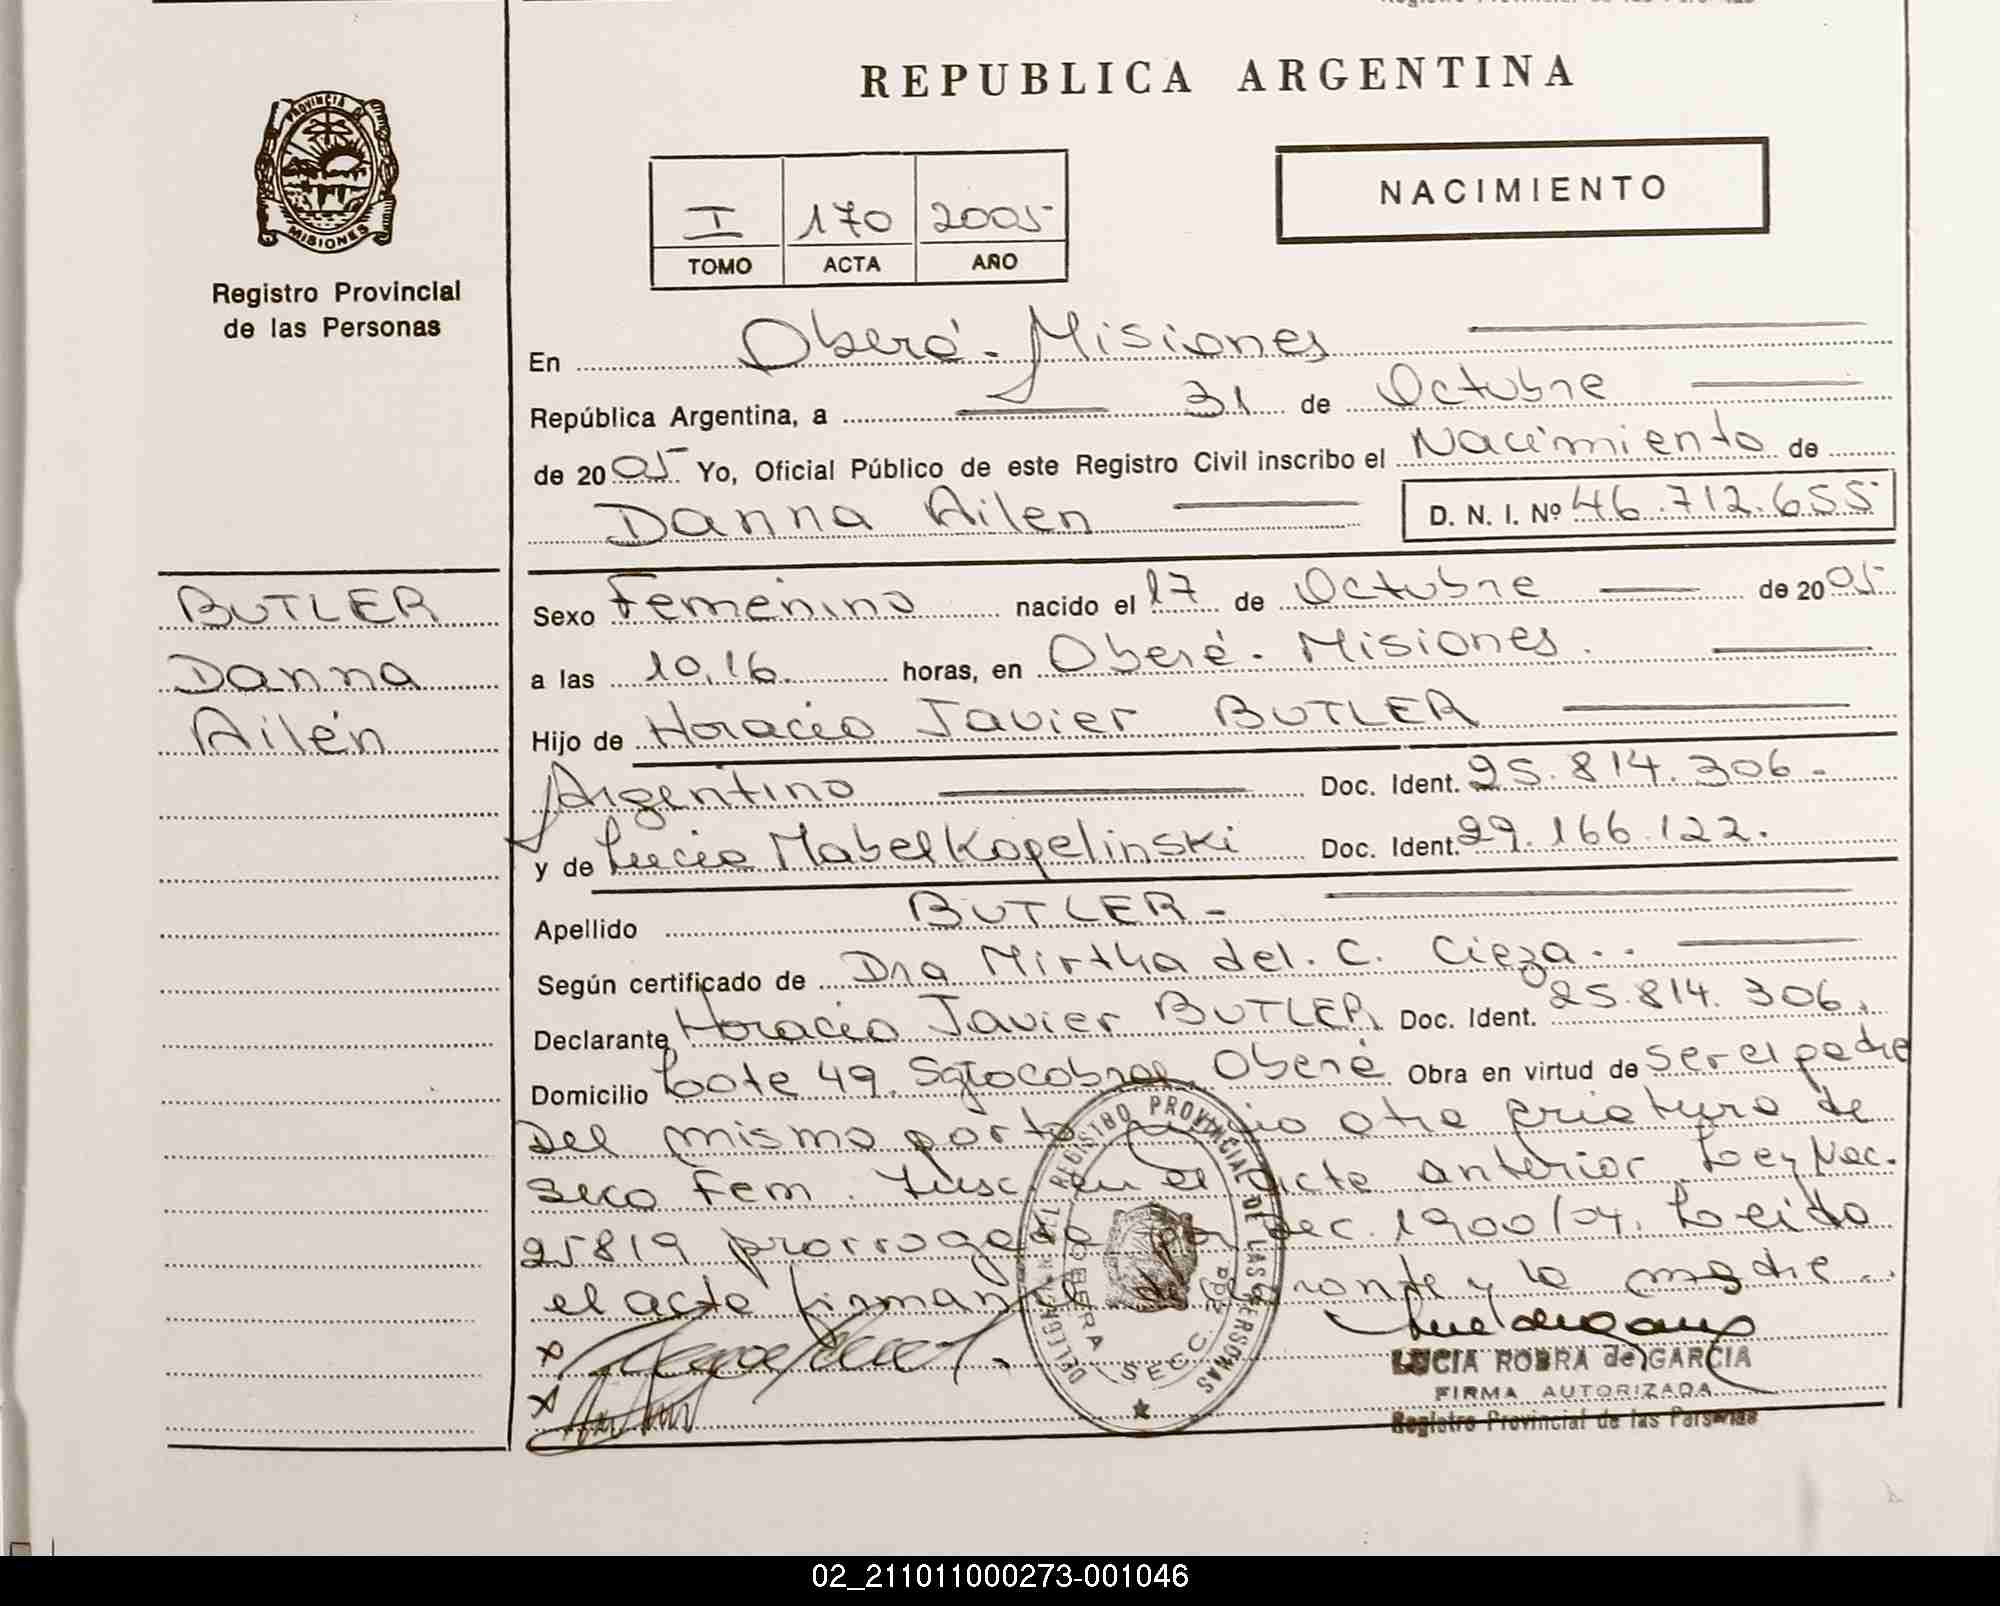 REPUBLICA ARGENTINA
PROVINCIA DE
MISIONES
Registro Provincial
de las Personas
NACIMIENTO
I 170 2005
TOMO ACTA AÑO
En Oberá - Misiones
República Argentina, a 31 de Octubre
de 2005 Yo, Oficial Público de este Registro Civil inscribo el Nacimiento de
Danna Ailen D. N. I. Nº 46.712.655
BUTLER
Danna
Ailén
Sexo Femenino nacido el 17 de Octubre de 2005
a las 10,16. horas, en Oberá - Misiones.
Hijo de Horacio Javier BUTLER
Argentino Doc. Ident. 25.814.306.-
y de Lucia Mabel Kopelinski Doc. Ident. 29.166.122.
Apellido BUTLER -
Según certificado de Dra Mirtha del. C. Cieza..
Declarante Horacio Javier BUTLER Doc. Ident. 25.814.306.
Domicilio Lote 49. Sgtocobral Oberá Obra en virtud de ser el padre
Del mismo parto otra criatura de
sexo Fem. Insc. en el acta anterior Ley Nac.
25819 prorrogada por Dec. 1900/04. Leida
el acta firman el declarante y la madre.
x
x
DELEGACION DEL REGISTRO PROVINCIAL DE LAS PERSONAS
OBERA SECC. 2da
LUCIA ROBRA de GARCIA
FIRMA AUTORIZADA
Registro Provincial de las Personas
02_211011000273-001046